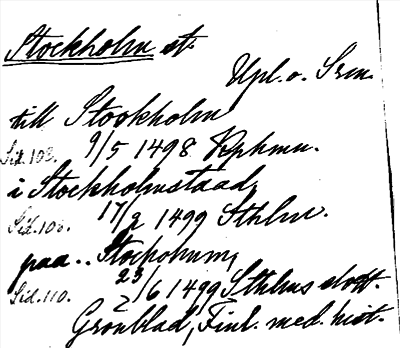 Stockholm st.
Upl. o. Srm.
till Stookholm
Sid. 103. 9/5 1498 Kphmn.
i Stockholmstaad,
Sid. 108. 17/2 1499 Sthlm.
paa .. Stocholum,
Sid. 110. 23/6 1499 Sthlms slott.
Grönblad, Finl. med. hist.